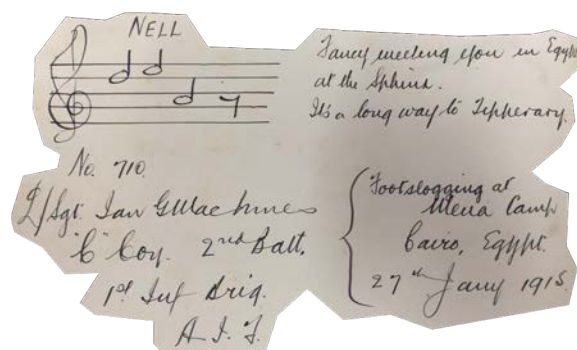 NELL
Fancy meeting you in Egypt
at the Sphinx.
It's a long way to Tipperary.
No. 710.
L/Sgt. Ian G
"C" Coy. 2nd Batt.
1st Inf Brig.
A.I.F.
Footslogging at
Mena Camp
Cairo, Egypt.
27th Jany 1915.